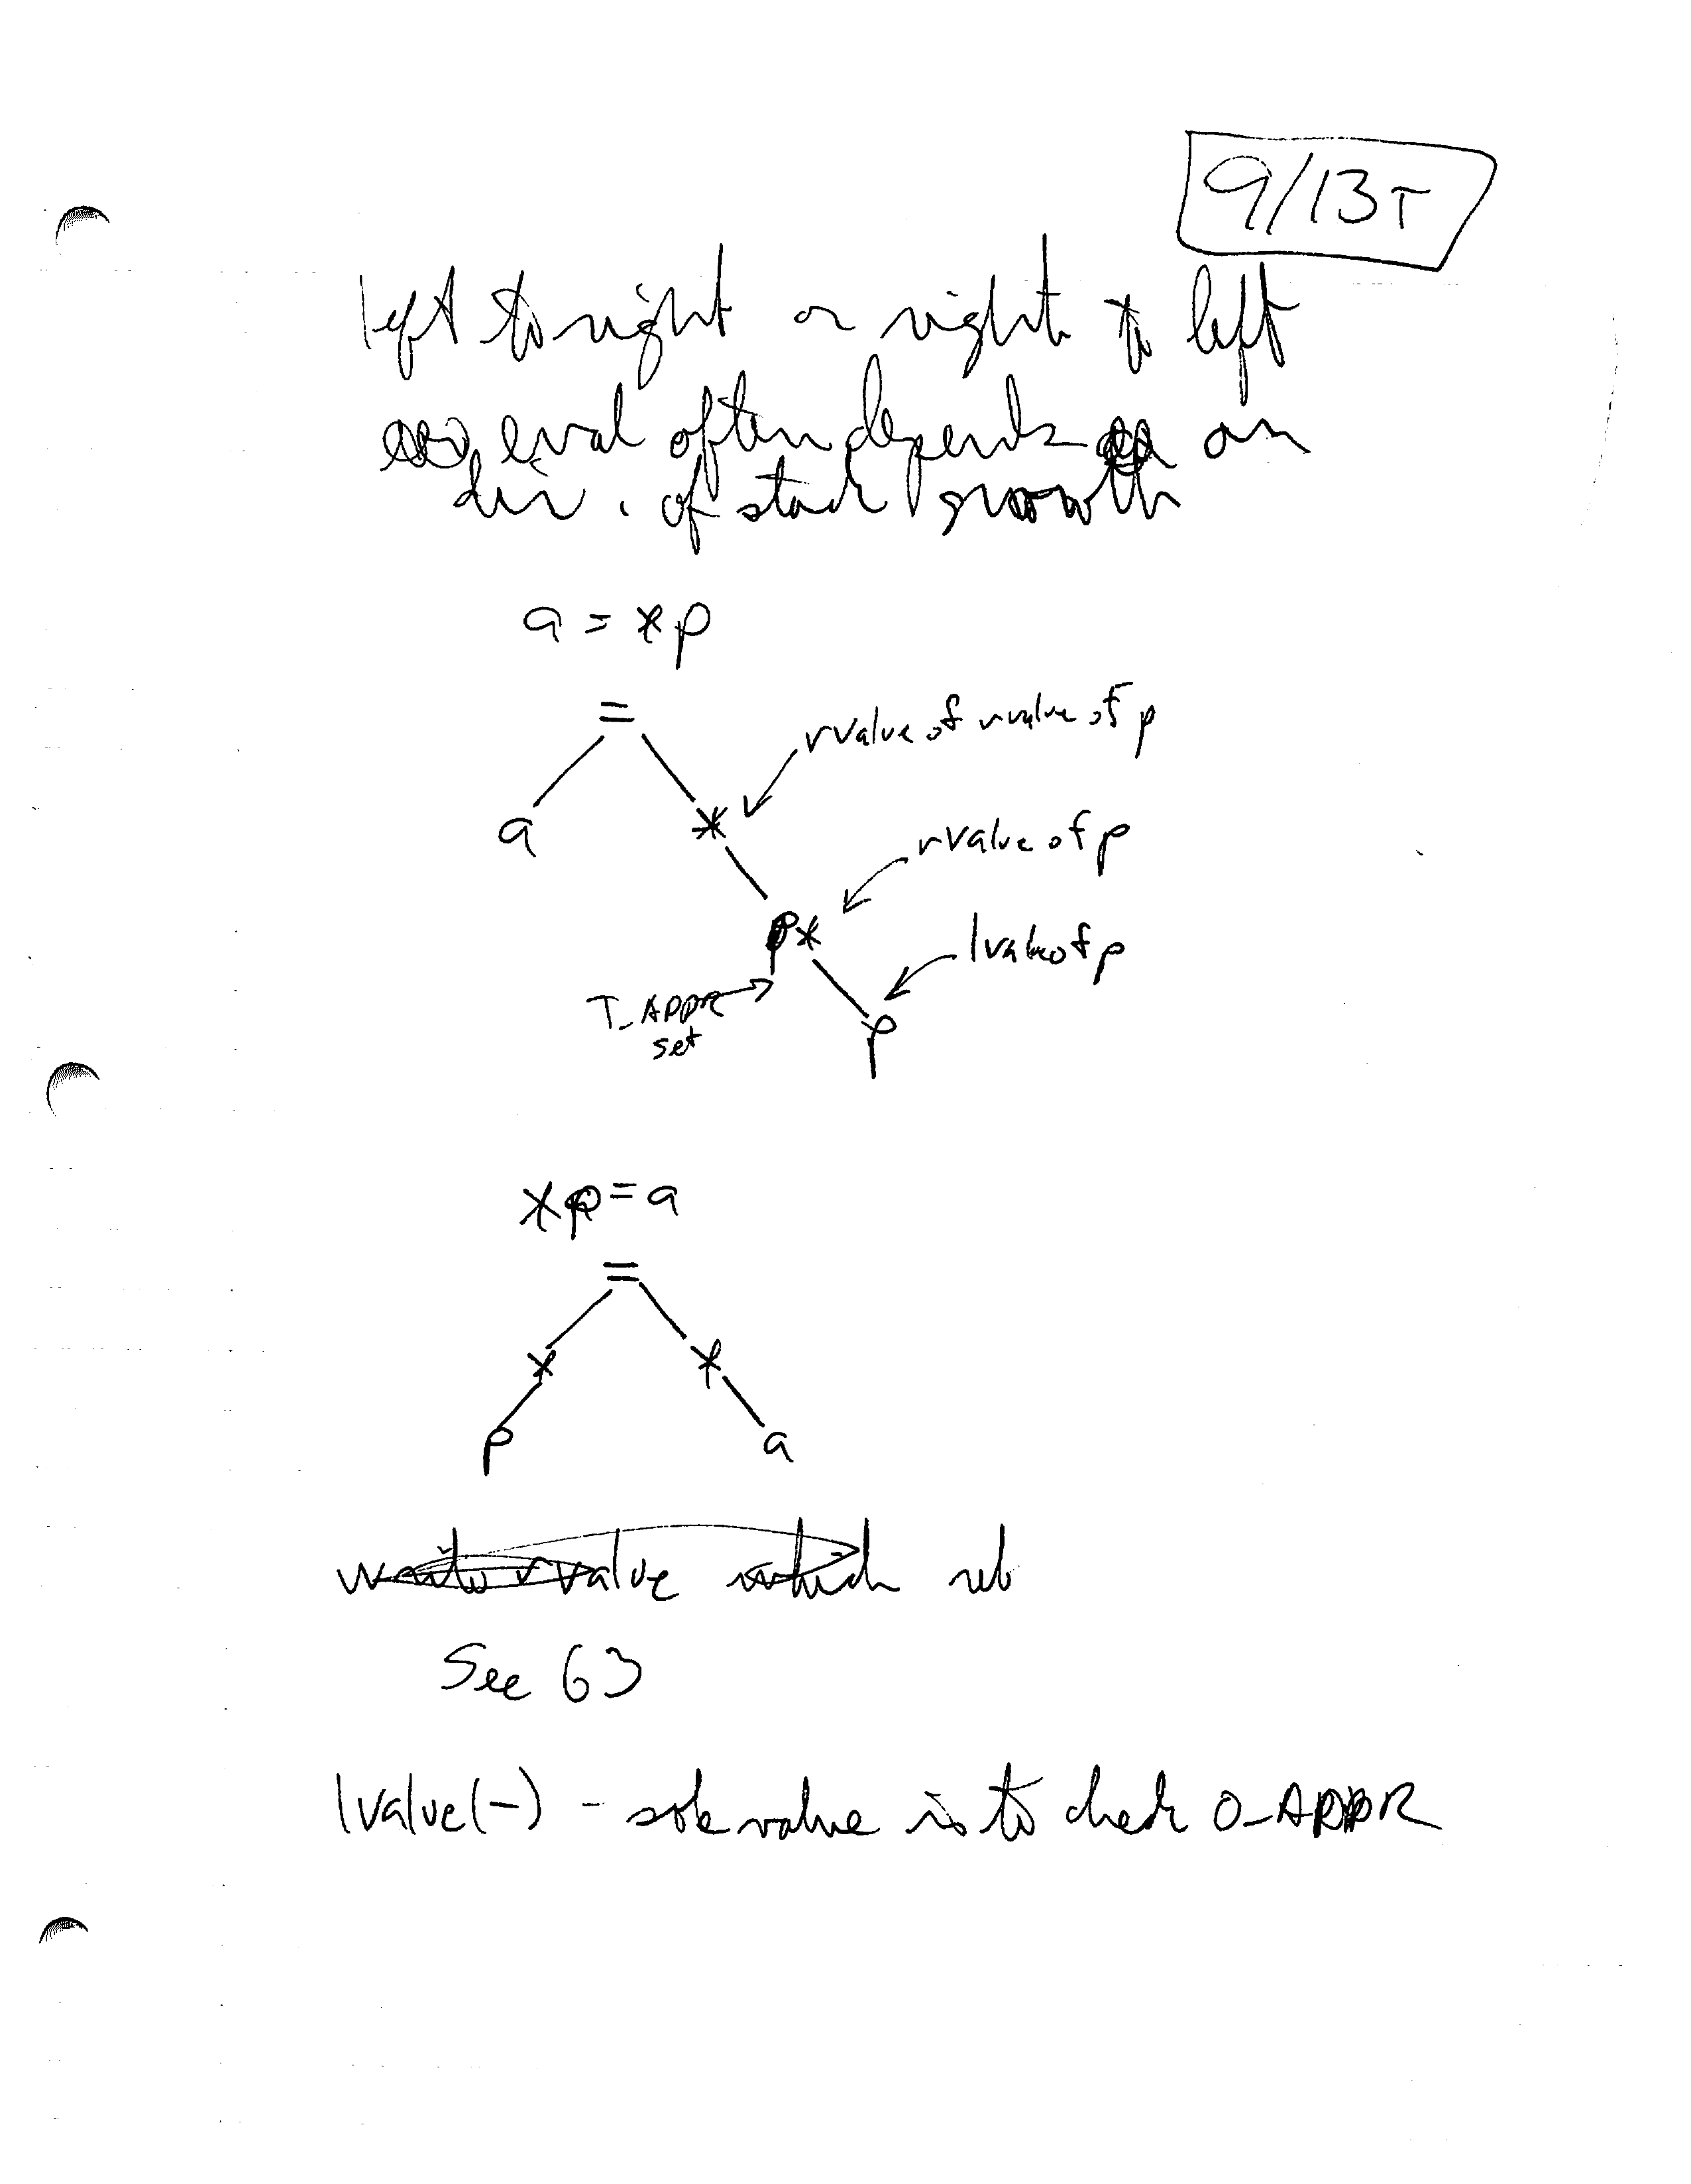 9/13 T
left to right or right to left
eval often depends on
dir. of stack growth
a = *p
=
rvalue of rvalue of p
a *
rvalue of p
p*
lvalue of p
T_APPR
set
p
*p = a
=
* *
p a
rvalue which
See 63
lvalue(-) - sole value is to check O_APPR